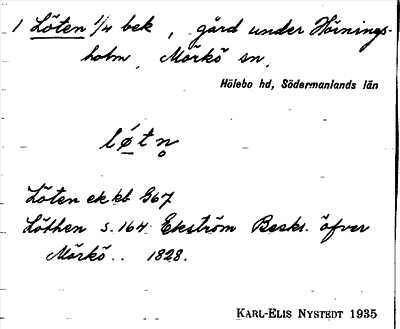 1 Löten 1/4 bek, gård under Hörnings-
holm, Mörkö sn.
Hölebo hd, Södermanlands län
lǿtn̥
Löten ek kb 367
Löthen s. 164 Ekström Beskr. öfver
Mörkö.. 1828.
KARL-ELIS NYSTEDT 1935